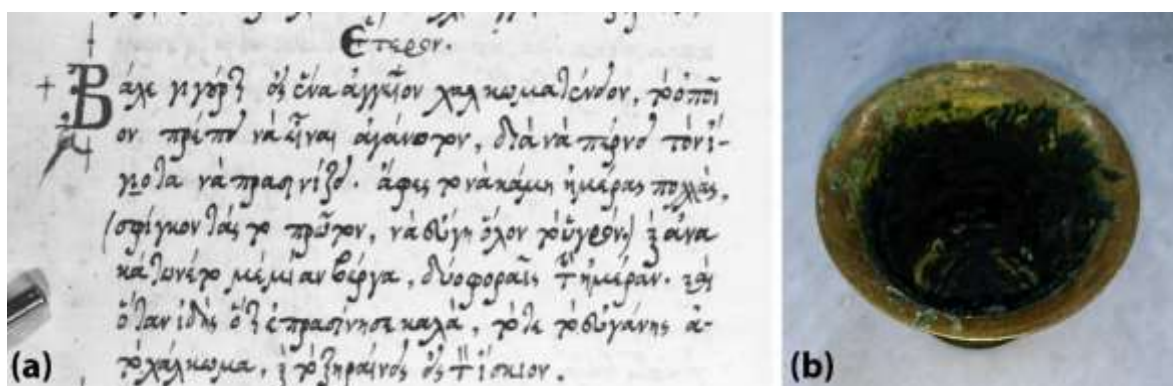 Ἕτερον.
Βάλε γιγούρτι εἰς ἕνα ἀγγεῖον χαλκωματένϊον, τὸ ὁποῖ
ον πρέπει νὰ εἶναι ἀγάνωτον, διὰ νὰ πέρνει τὸν ἰ-
νὰ πρασινίζει. ἄφες το νὰ κάμῃ ἡμέρας πολλάς,
(σφίγκοντάς το πρῶτον, νὰ εὔγη ὅλον τὸ ὑγρόν) καὶ ἀνα
κάτωνέ το μὲ μίαν βέργα, δύο φοραῖς τὴν ἡμέραν. καὶ
ὅταν ἰδῇς ὅτι ἐπρασίνησε καλὰ, τότε τὸ εὐγάνης ἀ-
τὸ χάλκωμα, καὶ τὸ ξηραίνεις εἰς τὸν ἴσκιον.
(a)
(b)